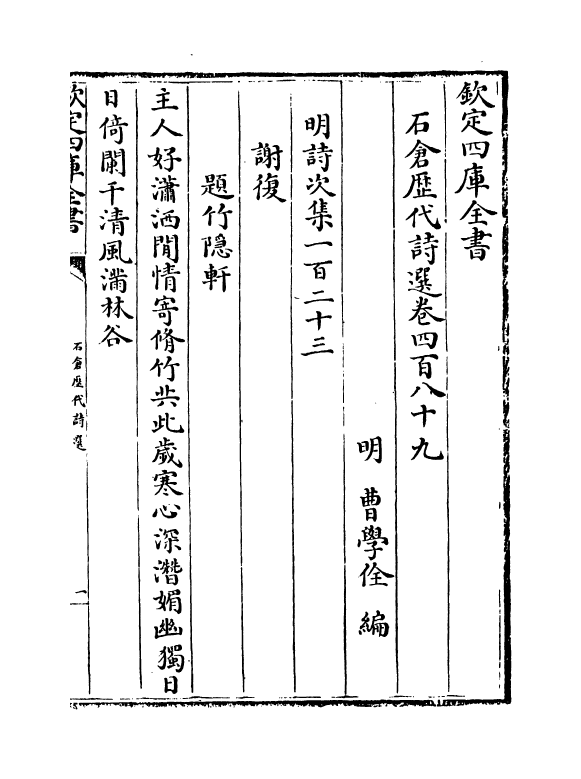 欽定四庫全書
石倉歴代詩選卷四百八十九
明 曹學佺 編
明詩次集一百二十三
謝復
題竹隠軒
主人好瀟洒閒情寄脩竹共此歲寒心深潛媚幽獨日
日倚闌干清風滿林谷
欽定四庫全書
石倉歴代詩選
一